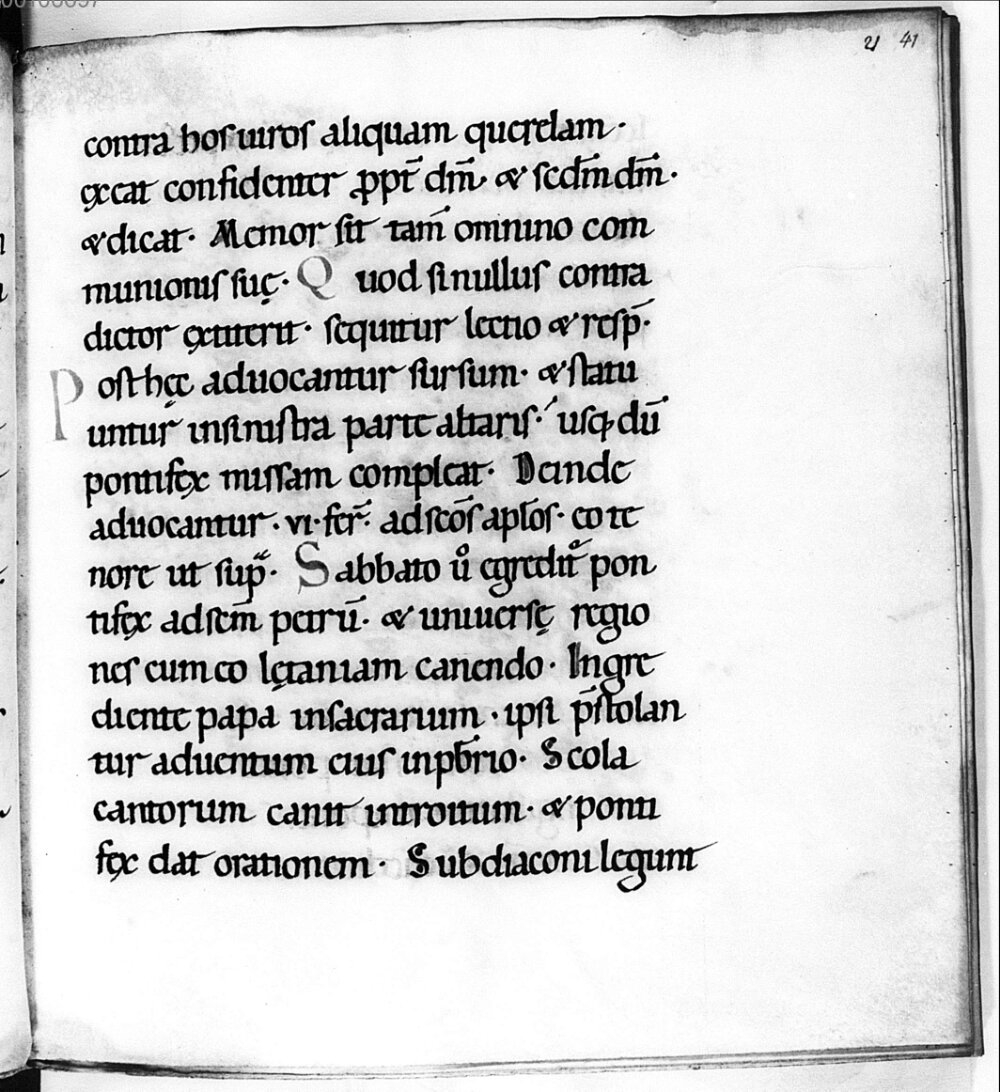 21 41
contra hos uiros aliquam querelam·
exeat confidenter ppt̄ dm̄· & sedm̄ dm̄·
& dicat· Memor sit tam̄ omnino com
munionis suę· Quod si nullus contra
dictor extiterit· sequitur lectio & resp̄·
Post hęc aduocantur sursum· & statu
untur in sinistra parte altaris· usq; dū
pontifex missam compleat· Deinde
aduocantur· vi· fer̄· ad scōs apl̄os· eo te
nore ut sup̄ͣ· Sabbato ůͦ egredit᷑ pon
tifex ad scm̄ petrū· & uniuersę regio
nes cum eo lętaniam canendo· Ingre
diente papa in sacrarium· ipsi p̄stolan
tur aduentum eius in pb̄rio· Scola
cantorum canit introitum· & ponti
fex dat orationem· Subdiaconi legunt